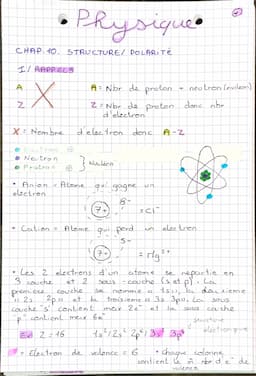 • Physique
CHAP 10. STRUCTURE / POLARITÉ
1/ RAPPELS
A
X
Z
A = Nbr de proton + neutron (nucléon)
Z = Nbr de proton donc nbr
d'électron
X = Nombre d'electron donc A-Z
• Electron ⊖
• Neutron
• Proton ⊕
} Nucléon
• Anion = Atome qui gagne un
électron
(7+) 8- = Cl⁻
• Cation = Atome qui perd un electron
• Les électrons d'un atome se repartie en
3 couche et 2 sous-couche (s et p). La
première couche se nomme a 1s, la deuxieme
a 2s 2p et la troisieme a 3s 3p. La sous
couche "s" contient max 2e⁻ et la sous couche
p contient max 6e⁻
structure
électronique
Ex: Z = 16 1s² 2s² 2p⁶ 3s² 3p⁴
= Electron de valence = 6
• Chaque colonne
contient le m nbr d'e⁻ de
valence